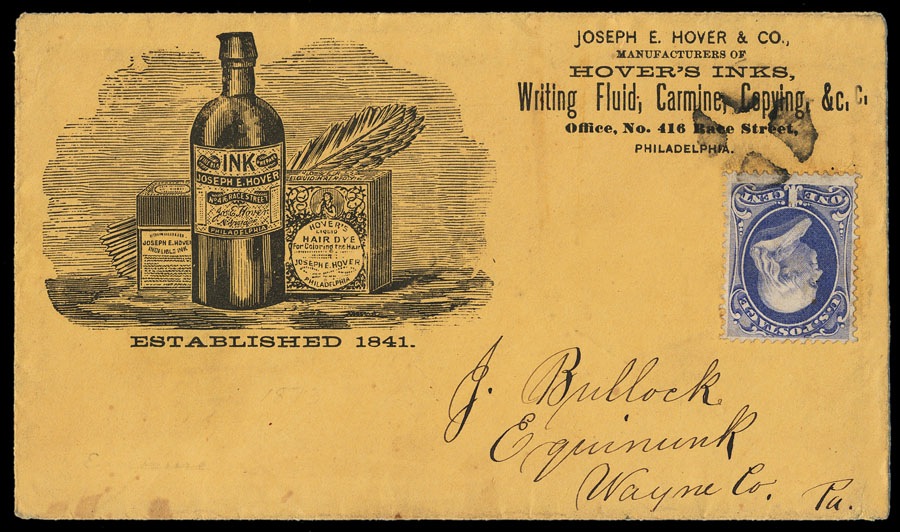 JOSEPH E. HOVER & CO.,
MANUFACTURERS OF
HOVER'S INKS,
Writing Fluid, Carmine, Copying, &c.
Office, No. 416 Race Street,
PHILADELPHIA.
INK
JOSEPH E. HOVER
No 416 RACE STREET
PHILADELPHIA
JOSEPH E. HOVER
LIQUID HAIR DYE
HOVER'S
LIQUID
HAIR DYE
For Coloring the Hair
JOSEPH E. HOVER
PHILADELPHIA
ESTABLISHED 1841.
ONE CENT
U.S. POSTAGE
J. Bullock
Equinunk
Wayne Co. Pa.